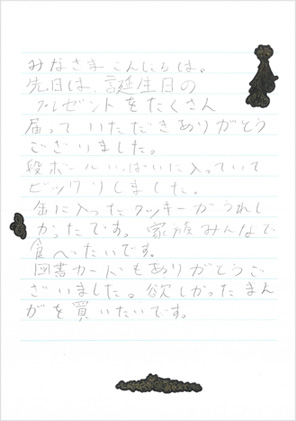 みなさまこんにちは。
先日は、誕生日の
プレゼントをたくさん
届って いただきありがとう
ございました。
段ボールいっぱいに入っていて
ビックリしました。
缶に入ったクッキーがうれし
かったです。家族みんなで
食べたいです。
図書カードもありがとうご
ざいました。欲しかったまん
がを買いたいです。